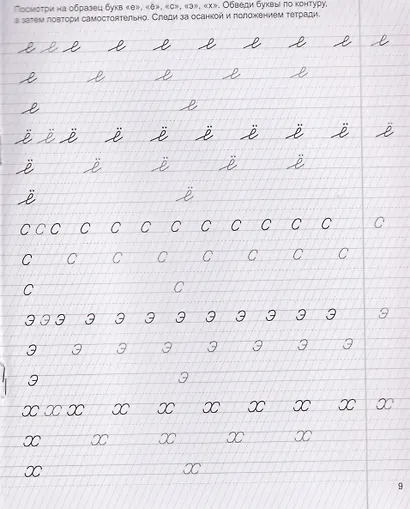 Посмотри на образец букв «е», «ё», «с», «э», «х». Обведи буквы по контуру,
а затем повтори самостоятельно. Следи за осанкой и положением тетради.
е е е е е е е е е е
е е е е е
е е
ё ё ё ё ё ё ё ё ё ё
ё ё ё ё ё
ё ё
с с с с с с с с с с с с с
с с с с с с с с
с с
э э э э э э э э э э э э э
э э э э э э э э
э э
х х х х х х х х х х
х х х х х
х х
9